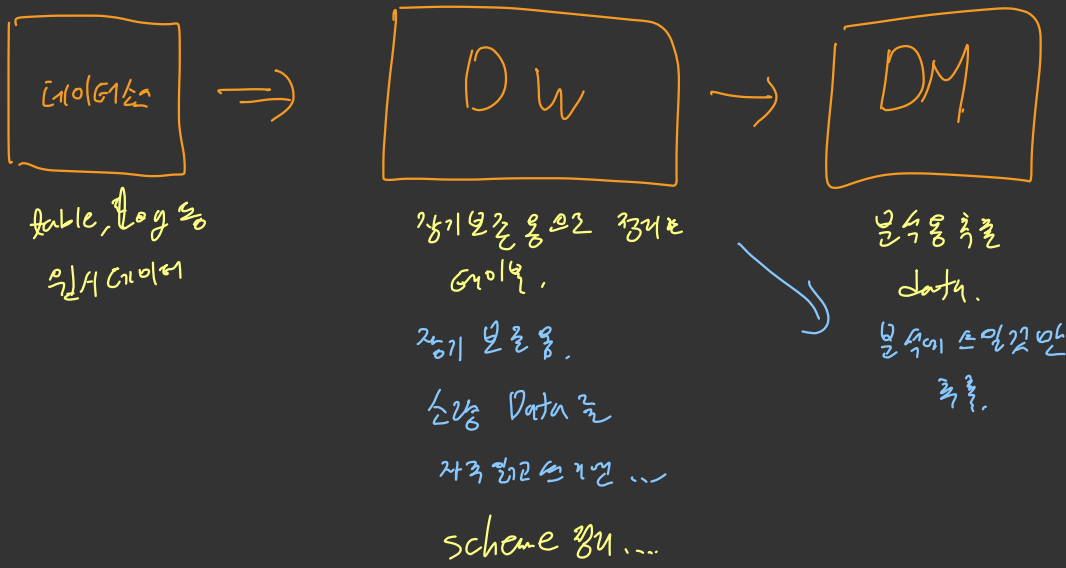 데이터소스
DW
DM
table, log 등
원시 데이터
장기보존용으로 정리된
테이블.
장기 보존용.
소량 Data를
자주 읽고 쓰기엔 ...
scheme 정리 ....
분석용 추출
data.
분석에 쓰일것만
추출.